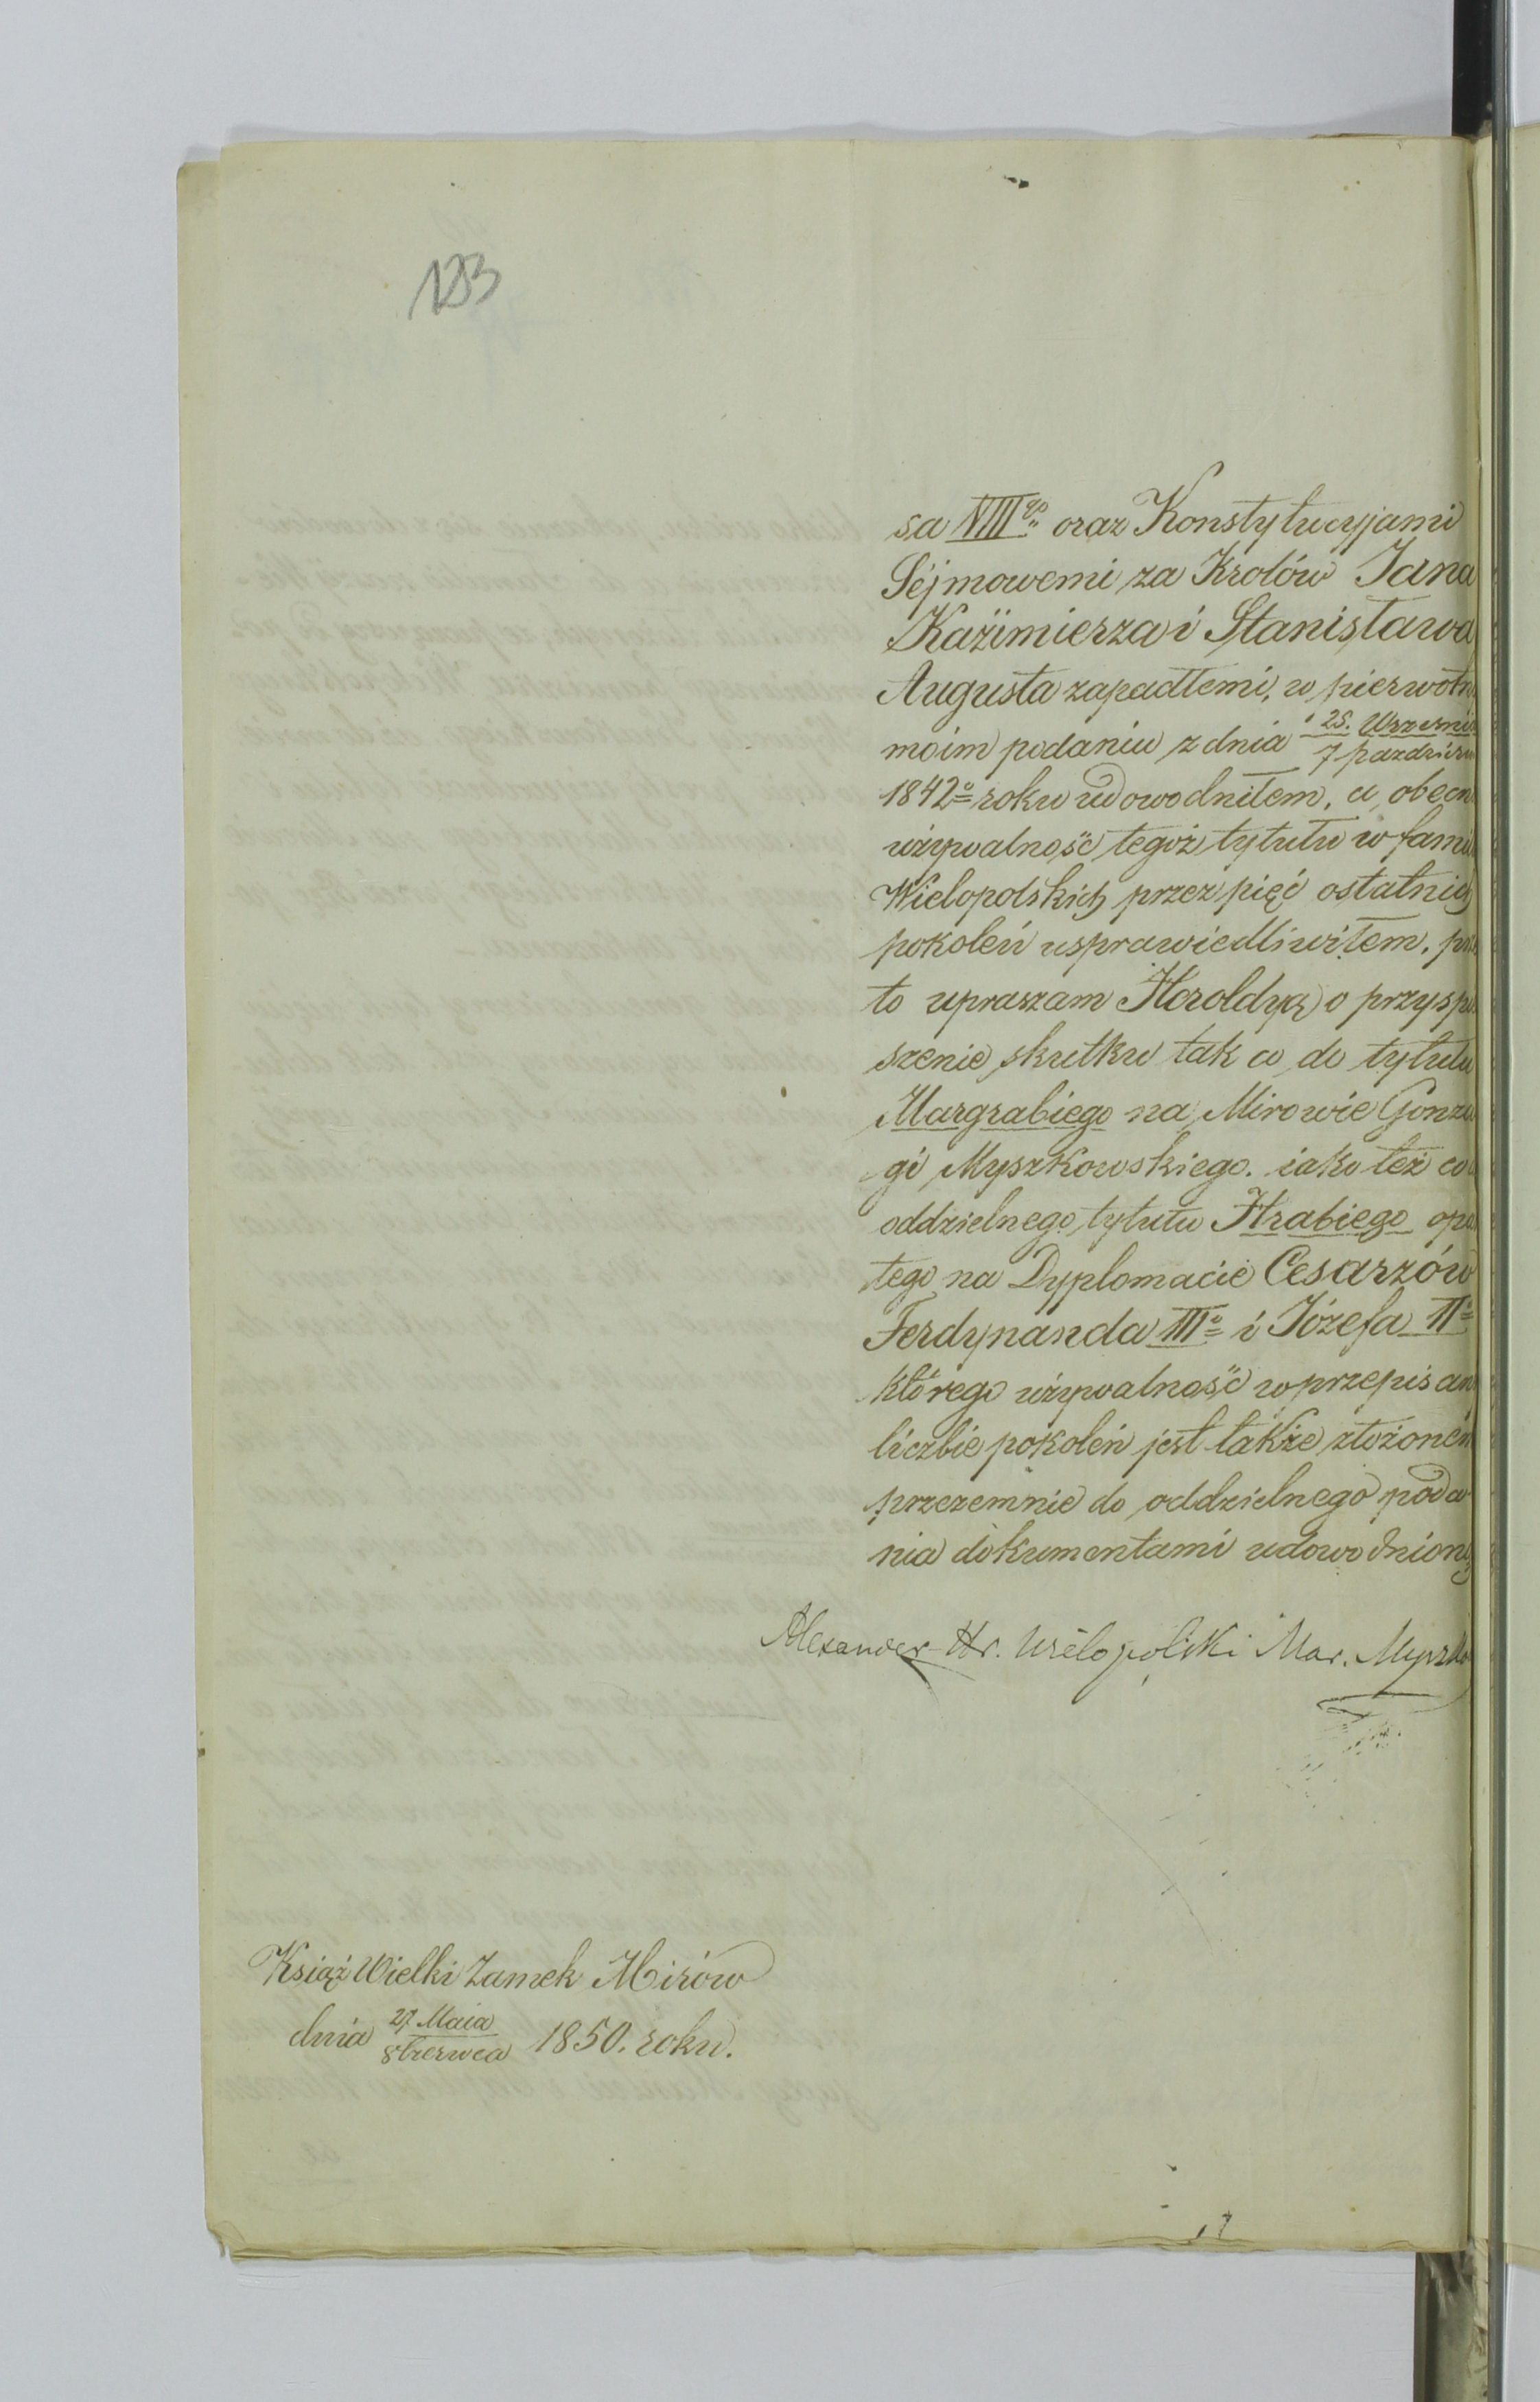 133
sa VIIIgo oraz Konstytucyjami
Séjmowemi za Krolów Jana
Kaźimierza i Stanisława
Augusta zapadłemi, w pierwotn
moim podaniu z dnia 25. Wrześni / 7 pazdziern
1842o roku udowodniłem, a obecn
używalność tegoż tytułu w fami
Wielopolskich przez pięć ostatnich
pokoleń usprawiedliwiłem, prze
to upraszam Heroldyą o przyspie
szenie skutku tak co do tytułu
Margrabiego na Mirowie Gonza
gi Myszkowskiego. iako też co
oddzielnego tytułu Hrabiego opa
tego na Dyplomacie Cesarzów
Ferdynanda IIIo i Józefa IIo
którego używalność w przepisan
liczbie pokoleń jest także złożonem
przezemnie do oddzielnego poda
nia dokumentami udowodniony
Alexander Hr. Wielopolski Mar. Myszko
Książ Wielki Zamek Mirów
dnia 27 Maia / 8 Czerwca 1850. roku.